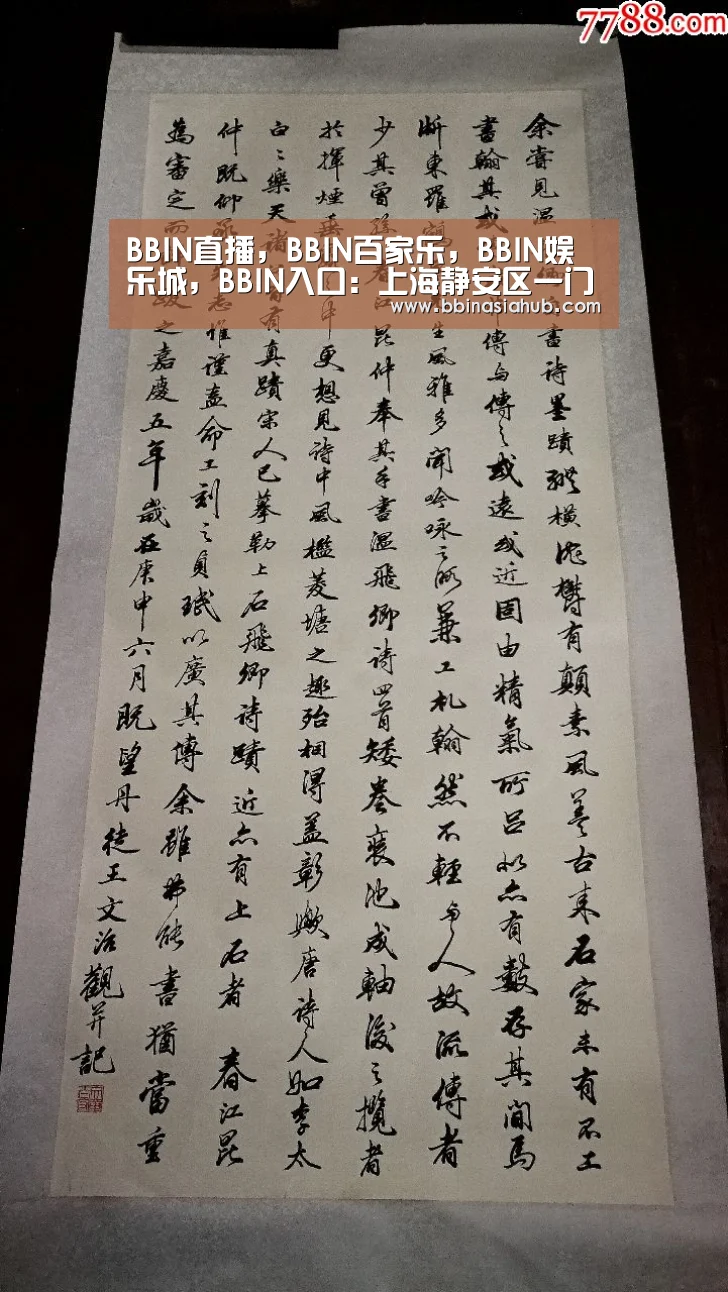 7788.com
BBIN直播，BBIN百家乐，BBIN娱
乐城，BBIN入口：上海静安区一门
www.bbinasiahub.com
余嘗見溫 書詩墨蹟縱橫 有顛素風 古來名家未有不工
書翰其或 傳与傳之或遠或近固由精氣所 亦有 存其間焉
浙東羅 生風雅多聞吟咏之 兼工札翰然不輕与人故流傳者
少其曾孫春江昆仲奉其手書溫飛卿詩四首矮卷裝池成軸後之攬者
於揮煙 中更想見詩中風檻菱塘之趣殆相得益彰 唐詩人如李太
白白樂天諸 有真蹟宋人已摹勒上石飛卿詩蹟近亦有上石者 春江昆
仲既仰承 志惟謹盍命工刻之貞珉以廣其傳余雖弗能書猶當重
為審定而 之嘉慶五年歲在庚申六月既望丹徒王文治觀并記